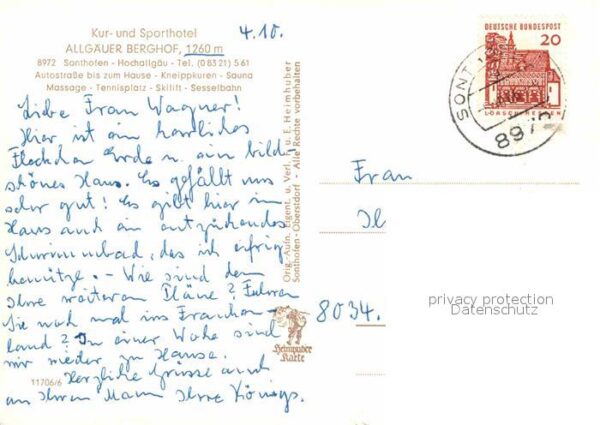 Kur- und Sporthotel
ALLGÄUER BERGHOF, 1260 m
8972 Sonthofen - Hochallgäu - Tel. (08321) 561
Autostraße bis zum Hause - Kneippkuren - Sauna
Massage - Tennisplatz - Skilift - Sesselbahn
4.10.
Liebe Frau Wagner!
Hier ist ein herrliches
Fleckchen Erde u. ein bild-
schönes Haus. Es gefällt uns
sehr gut! Es gibt hier im
Haus auch ein entzückendes
Schwimmbad, das ich eifrig
benütze. - Wie sind denn
Ihre weiteren Pläne? Fahren
Sie noch mal ins Franken-
land? In einer Woche sind
wir wieder zu Hause.
Herzliche Grüsse auch
an Ihren Mann Ihre Königs.
11706/6
Orig.-Aufn. Eigent. u. Verl. F. u. E. Heimhuber
Sonthofen-Oberstdorf - Alle Rechte vorbehalten
Heimhuber
Karte
DEUTSCHE BUNDESPOST
20
LORSCH HESSEN
SONT
897
Frau
8034.
privacy protection
Datenschutz